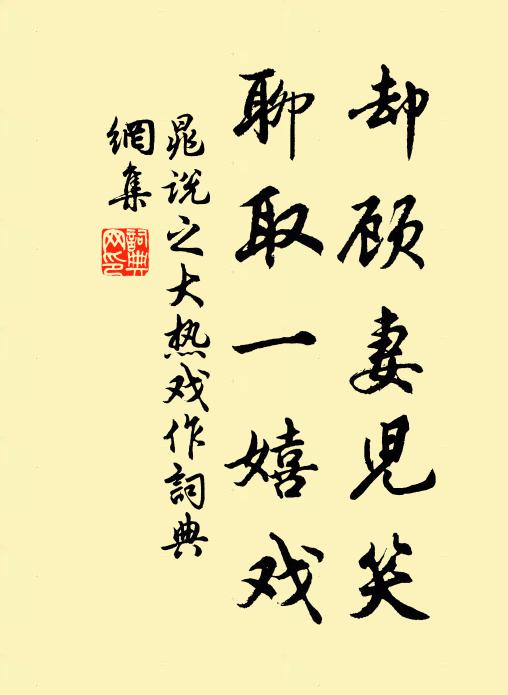 却顾妻児笑
聊取一嬉戏
晁说之大热戏作詞典
網集
詞典
网印